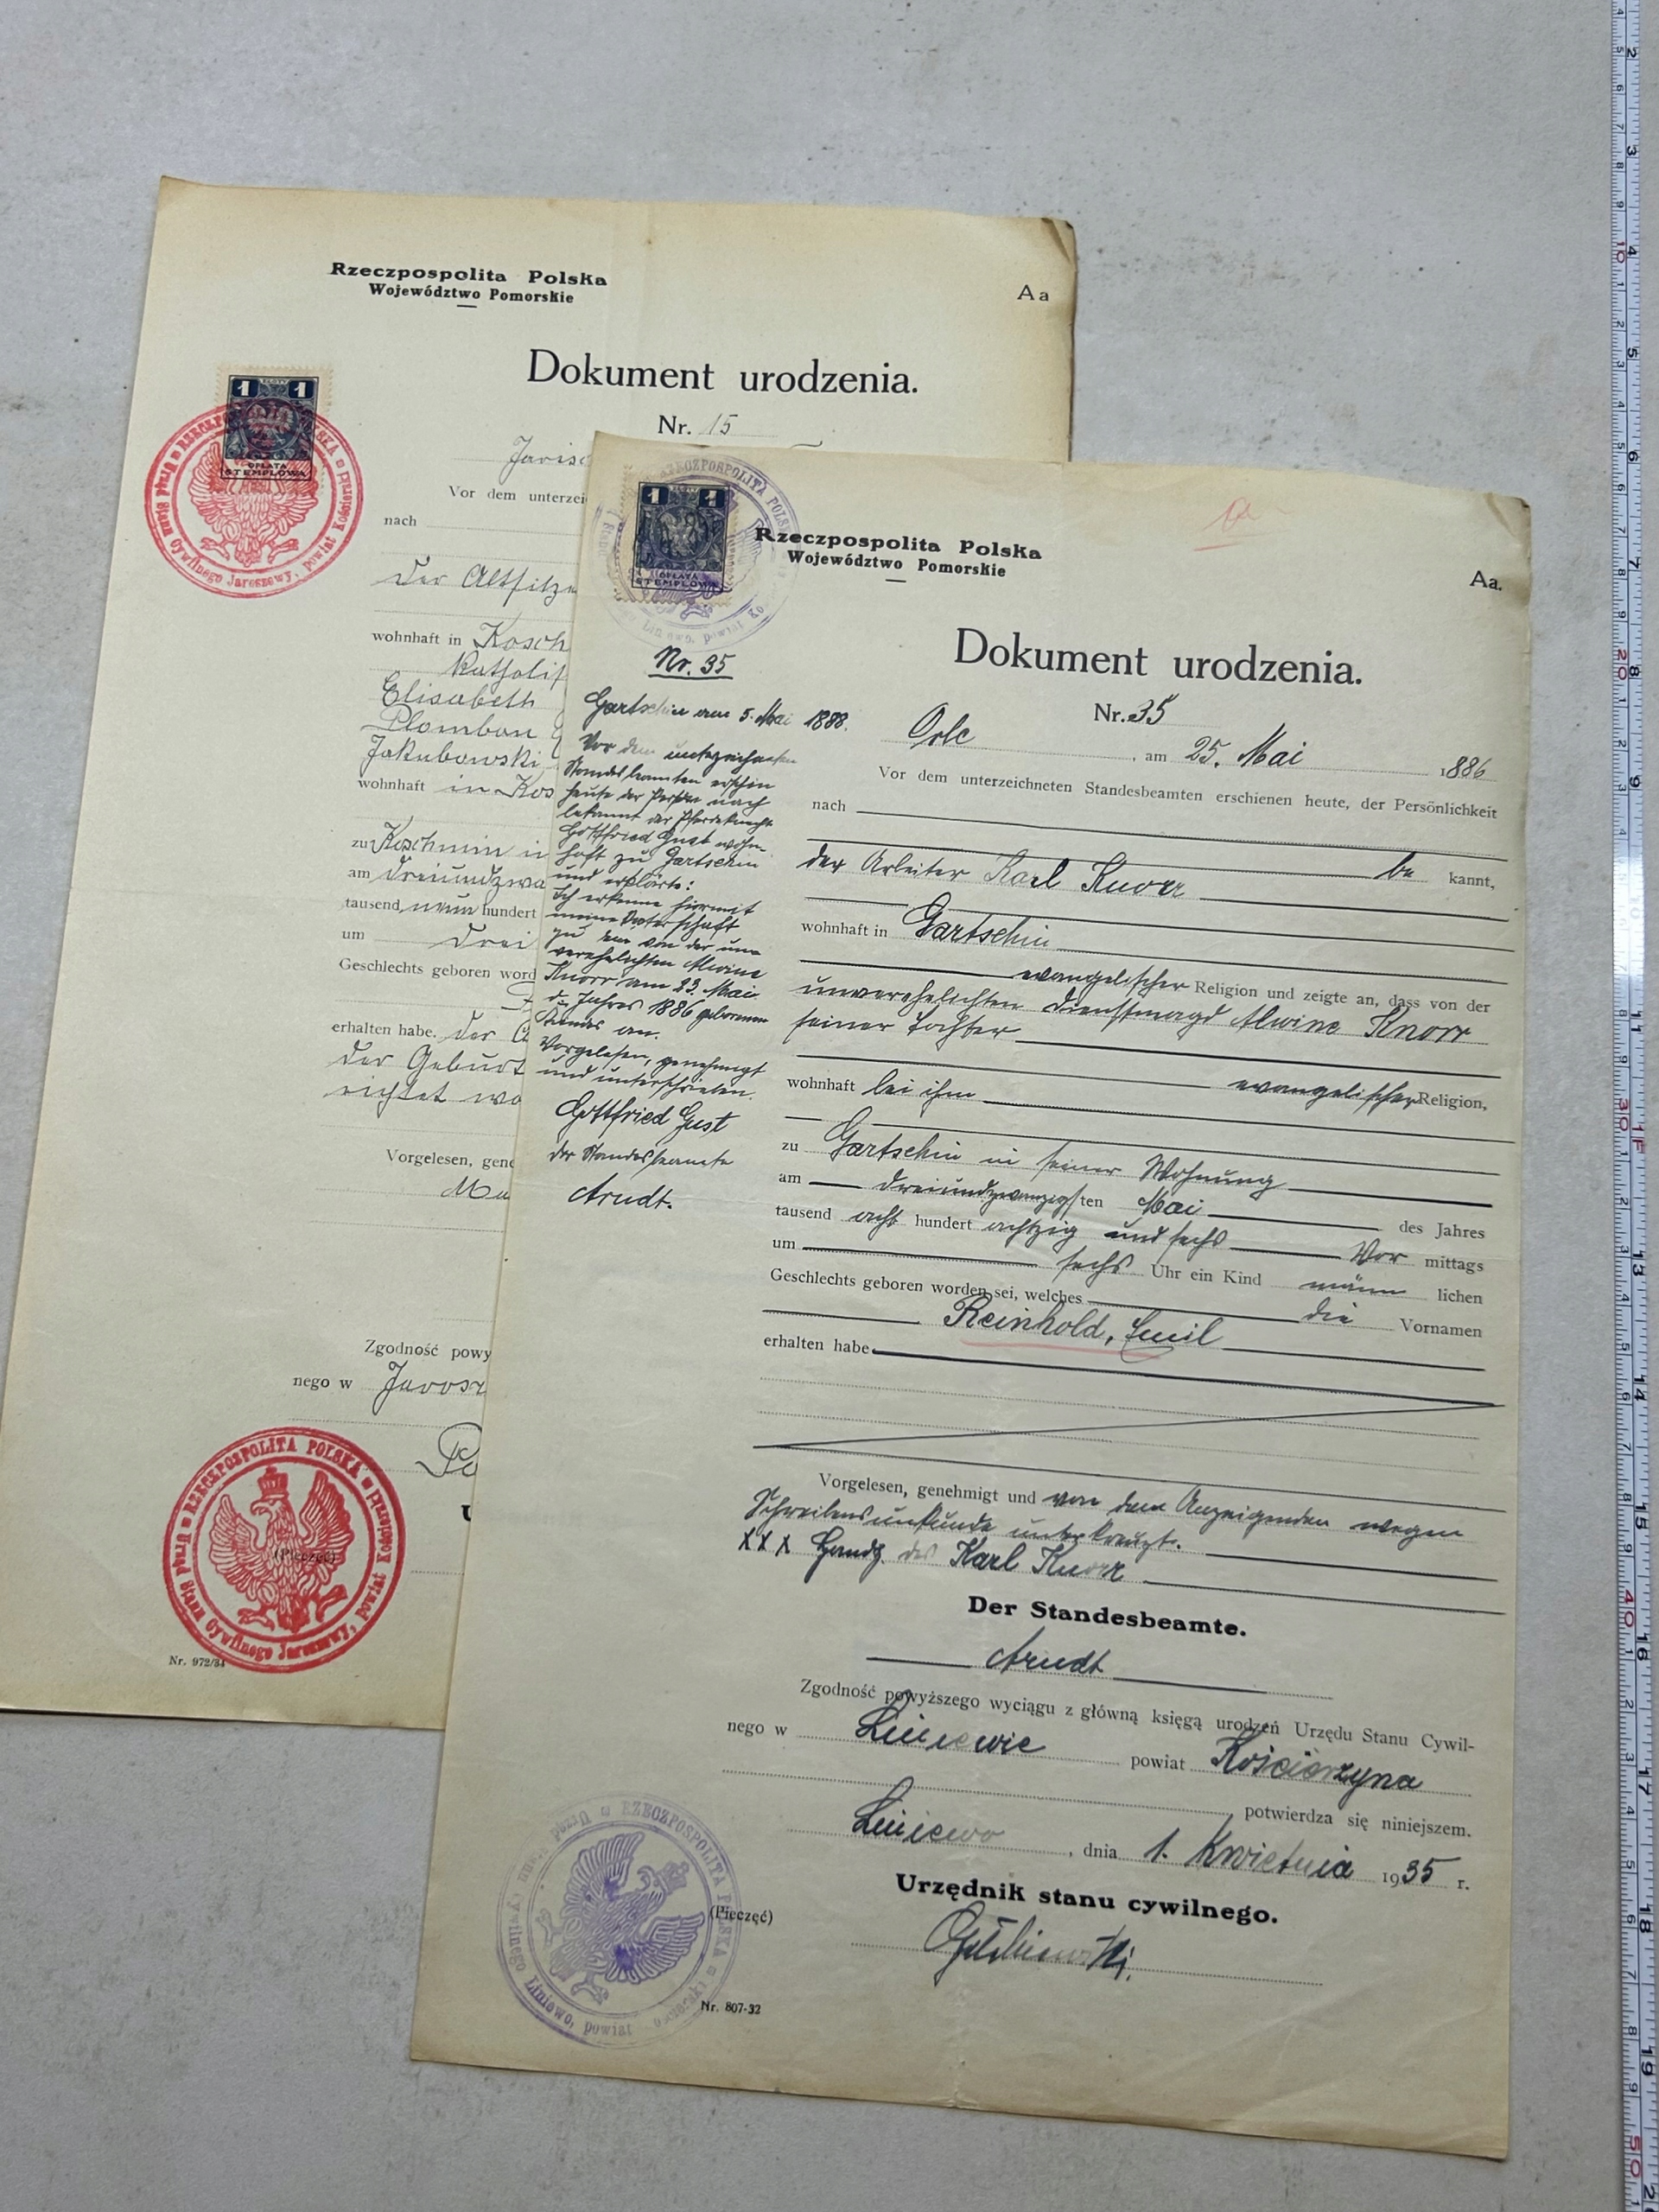 Rzeczpospolita Polska
Województwo Pomorskie
Aa
Dokument urodzenia.
Nr. 15
1 ZŁOTY 1
OPŁATA
STEMPLOWA
Vor dem unterzei
nach
der Altsitze
wohnhaft in Kosch
Katholis
Elisabeth
Plomban
Jakubowski
wohnhaft in Kos
zu Koschmin in
am dreiundzwa
tausend neun hundert
um drei
Geschlechts geboren word
erhalten habe. der
der Geburt
richtet wo
Vorgelesen, gene
Ma
Zgodność powy
nego w Jarosz
RZECZPOSPOLITA POLSKA
Urząd Stanu Cywilnego Jaroszewy, powiat Kościerski
(Pieczęć)
Nr. 972/34
1 1
OPŁATA
STEMPLOWA
RZECZPOSPOLITA POLSKA
Liniewo, powiat
Rzeczpospolita Polska
Województwo Pomorskie
Aa.
Dokument urodzenia.
Nr. 35
Orle, am 25. Mai 1886
Vor dem unterzeichneten Standesbeamten erschienen heute, der Persönlichkeit
nach
be kannt,
der Arbeiter Karl Knorr
wohnhaft in Gartschin
evangelischer Religion und zeigte an, dass von der
unverehelichten Dienstmagd Alwine Knorr
seiner Tochter
wohnhaft bei ihm evangelischer Religion,
zu Gartschin in seiner Wohnung
am dreiundzwanzigsten Mai des Jahres
tausend acht hundert achtzig und sechs Vor mittags
um sechs Uhr ein Kind männ lichen
Geschlechts geboren worden sei, welches die Vornamen
Reinhold, Emil
erhalten habe
Vorgelesen, genehmigt und von dem Anzeigenden wegen
Schreibensunkunde unterkreuzt.
XXX Handz. des Karl Knorr
Der Standesbeamte.
Arndt
Zgodność powyższego wyciągu z główną księgą urodzeń Urzędu Stanu Cywil-
nego w Liniewie powiat Kościerzyna
potwierdza się niniejszem.
Liniewo, dnia 1. Kwietnia 1935 r.
Urzędnik stanu cywilnego.
(Pieczęć)
RZECZPOSPOLITA POLSKA
Liniewo, powiat
Nr. 807-32
Nr. 35
Gartschin am 5. Mai 1888.
Vor dem unterzeichneten
Standesbeamten erschien
heute der Person nach
bekannt der Pferdeknecht
Gottfried Gust wohn-
haft zu Gartschin
und erklärte:
Ich erkenne hiermit
meine Vaterschaft
zu dem von der un-
verehelichten Alwine
Knorr am 23. Mai
d. Jahres 1886 geborenen
Kindes an.
Vorgelesen, genehmigt
und unterschrieben.
Gottfried Gust
der Standesbeamte
Arndt.